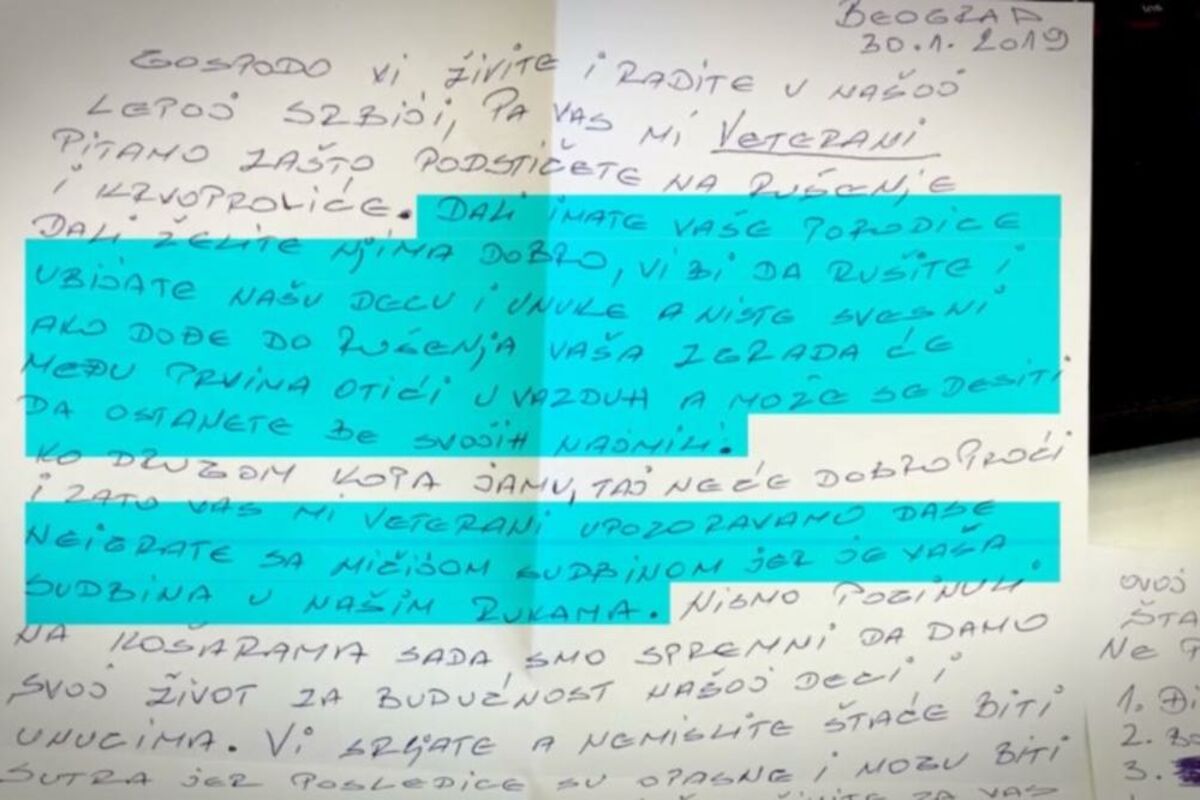 BEOGRAD
30.1.2019
GOSPODO VI ŽIVITE I RADITE U NAŠOJ
LEPOJ SRBIJI, PA VAS MI VETERANI
PITAMO ZAŠTO PODSTIČETE NA RUŠENJE
I KRVOPROLIĆE. DALI IMATE VAŠE PORODICE
DALI ŽELITE NJIMA DOBRO, VI BI DA RUŠITE I
UBIJATE NAŠU DECU I UNUKE A NISTE SVESNI
AKO DOĐE DO RUŠENJA VAŠA ZGRADA ĆE
MEĐU PRVIMA OTIĆI U VAZDUH A MOŽE SE DESITI
DA OSTANETE BE SVOJIH NAJMILI.
KO DRUGOM KOPA JAMU, TAJ NEĆE DOBRO PROĆI
I ZATO VAS MI VETERANI UPOZORAVAMO DASE
NEIGRATE SA NIČIJOM SUDBINOM JER JE VAŠA
SUDBINA U NAŠIM RUKAMA. NISMO POGINULI
NA KOŠARAMA SADA SMO SPREMNI DA DAMO
SVOJ ŽIVOT ZA BUDUĆNOST NAŠOJ DECI I
UNUCIMA. VI SRLJATE A NEMISLITE ŠTAĆE BITI
SUTRA JER POSLEDICE SU OPASNE I MOGU BITI
ZA VAS
OVOJ
ŠTA
NE
1.
2.
3.